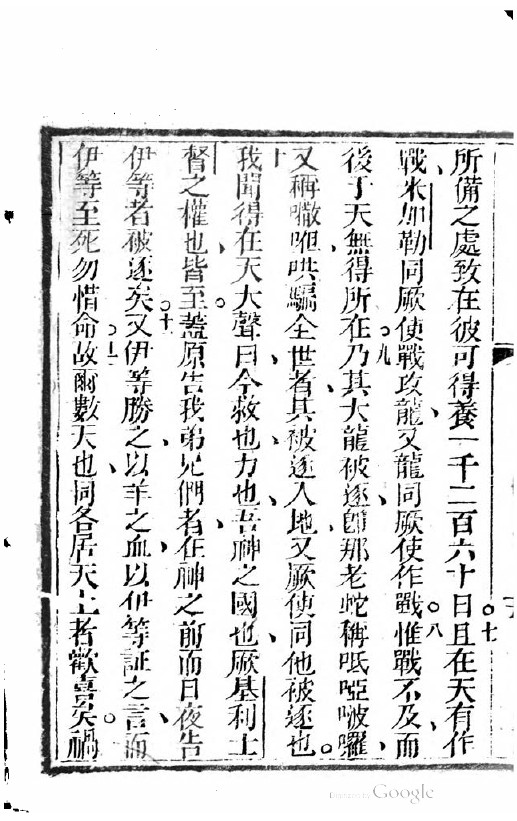 所備之處致在彼可得養一千二百六十日且在天有作
七
戰米加勒同厥使戰攻龍又龍同厥使作戰惟戰不及而
八
後于天無得所在乃其大龍被逐卽那老蛇稱呧啞啵囉
九
又稱㘔呾哄騙全世者其被逐入地又厥使同他被逐也
十
我聞得在天大聲曰今救也力也吾神之國也厥基利士
督之權也皆至蓋原告我弟兄們者在神之前而日夜告
伊等者被逐矣又伊等勝之以羊之血以伊等証之言而
十一
伊等至死勿惜命故爾數天也同各居天上者歡喜矣禍
Digitized by Google